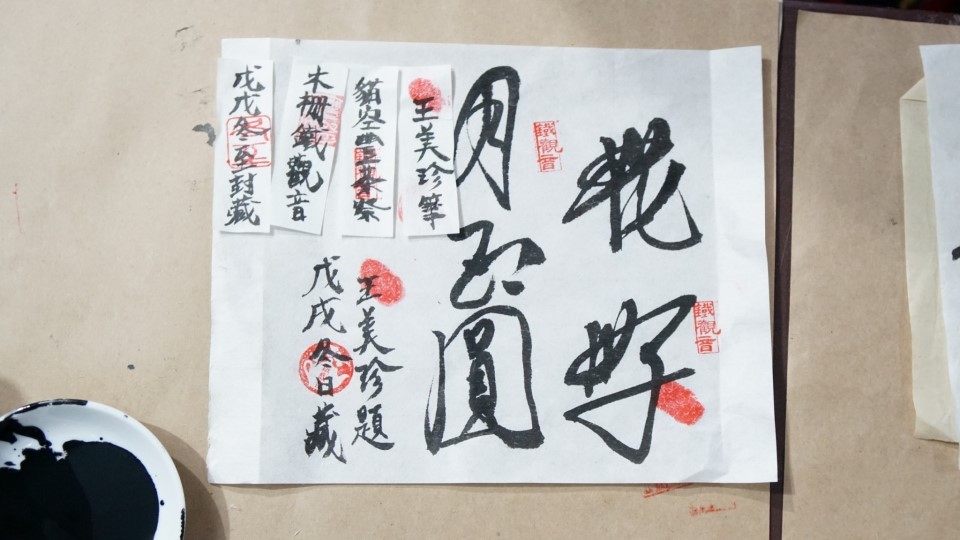 花好
月正圓
王美珍題
戊戌冬日藏
王美珍筆
貓空茶祭
木柵鐵觀音
戊戌冬至封藏
鐵觀音
鐵觀音